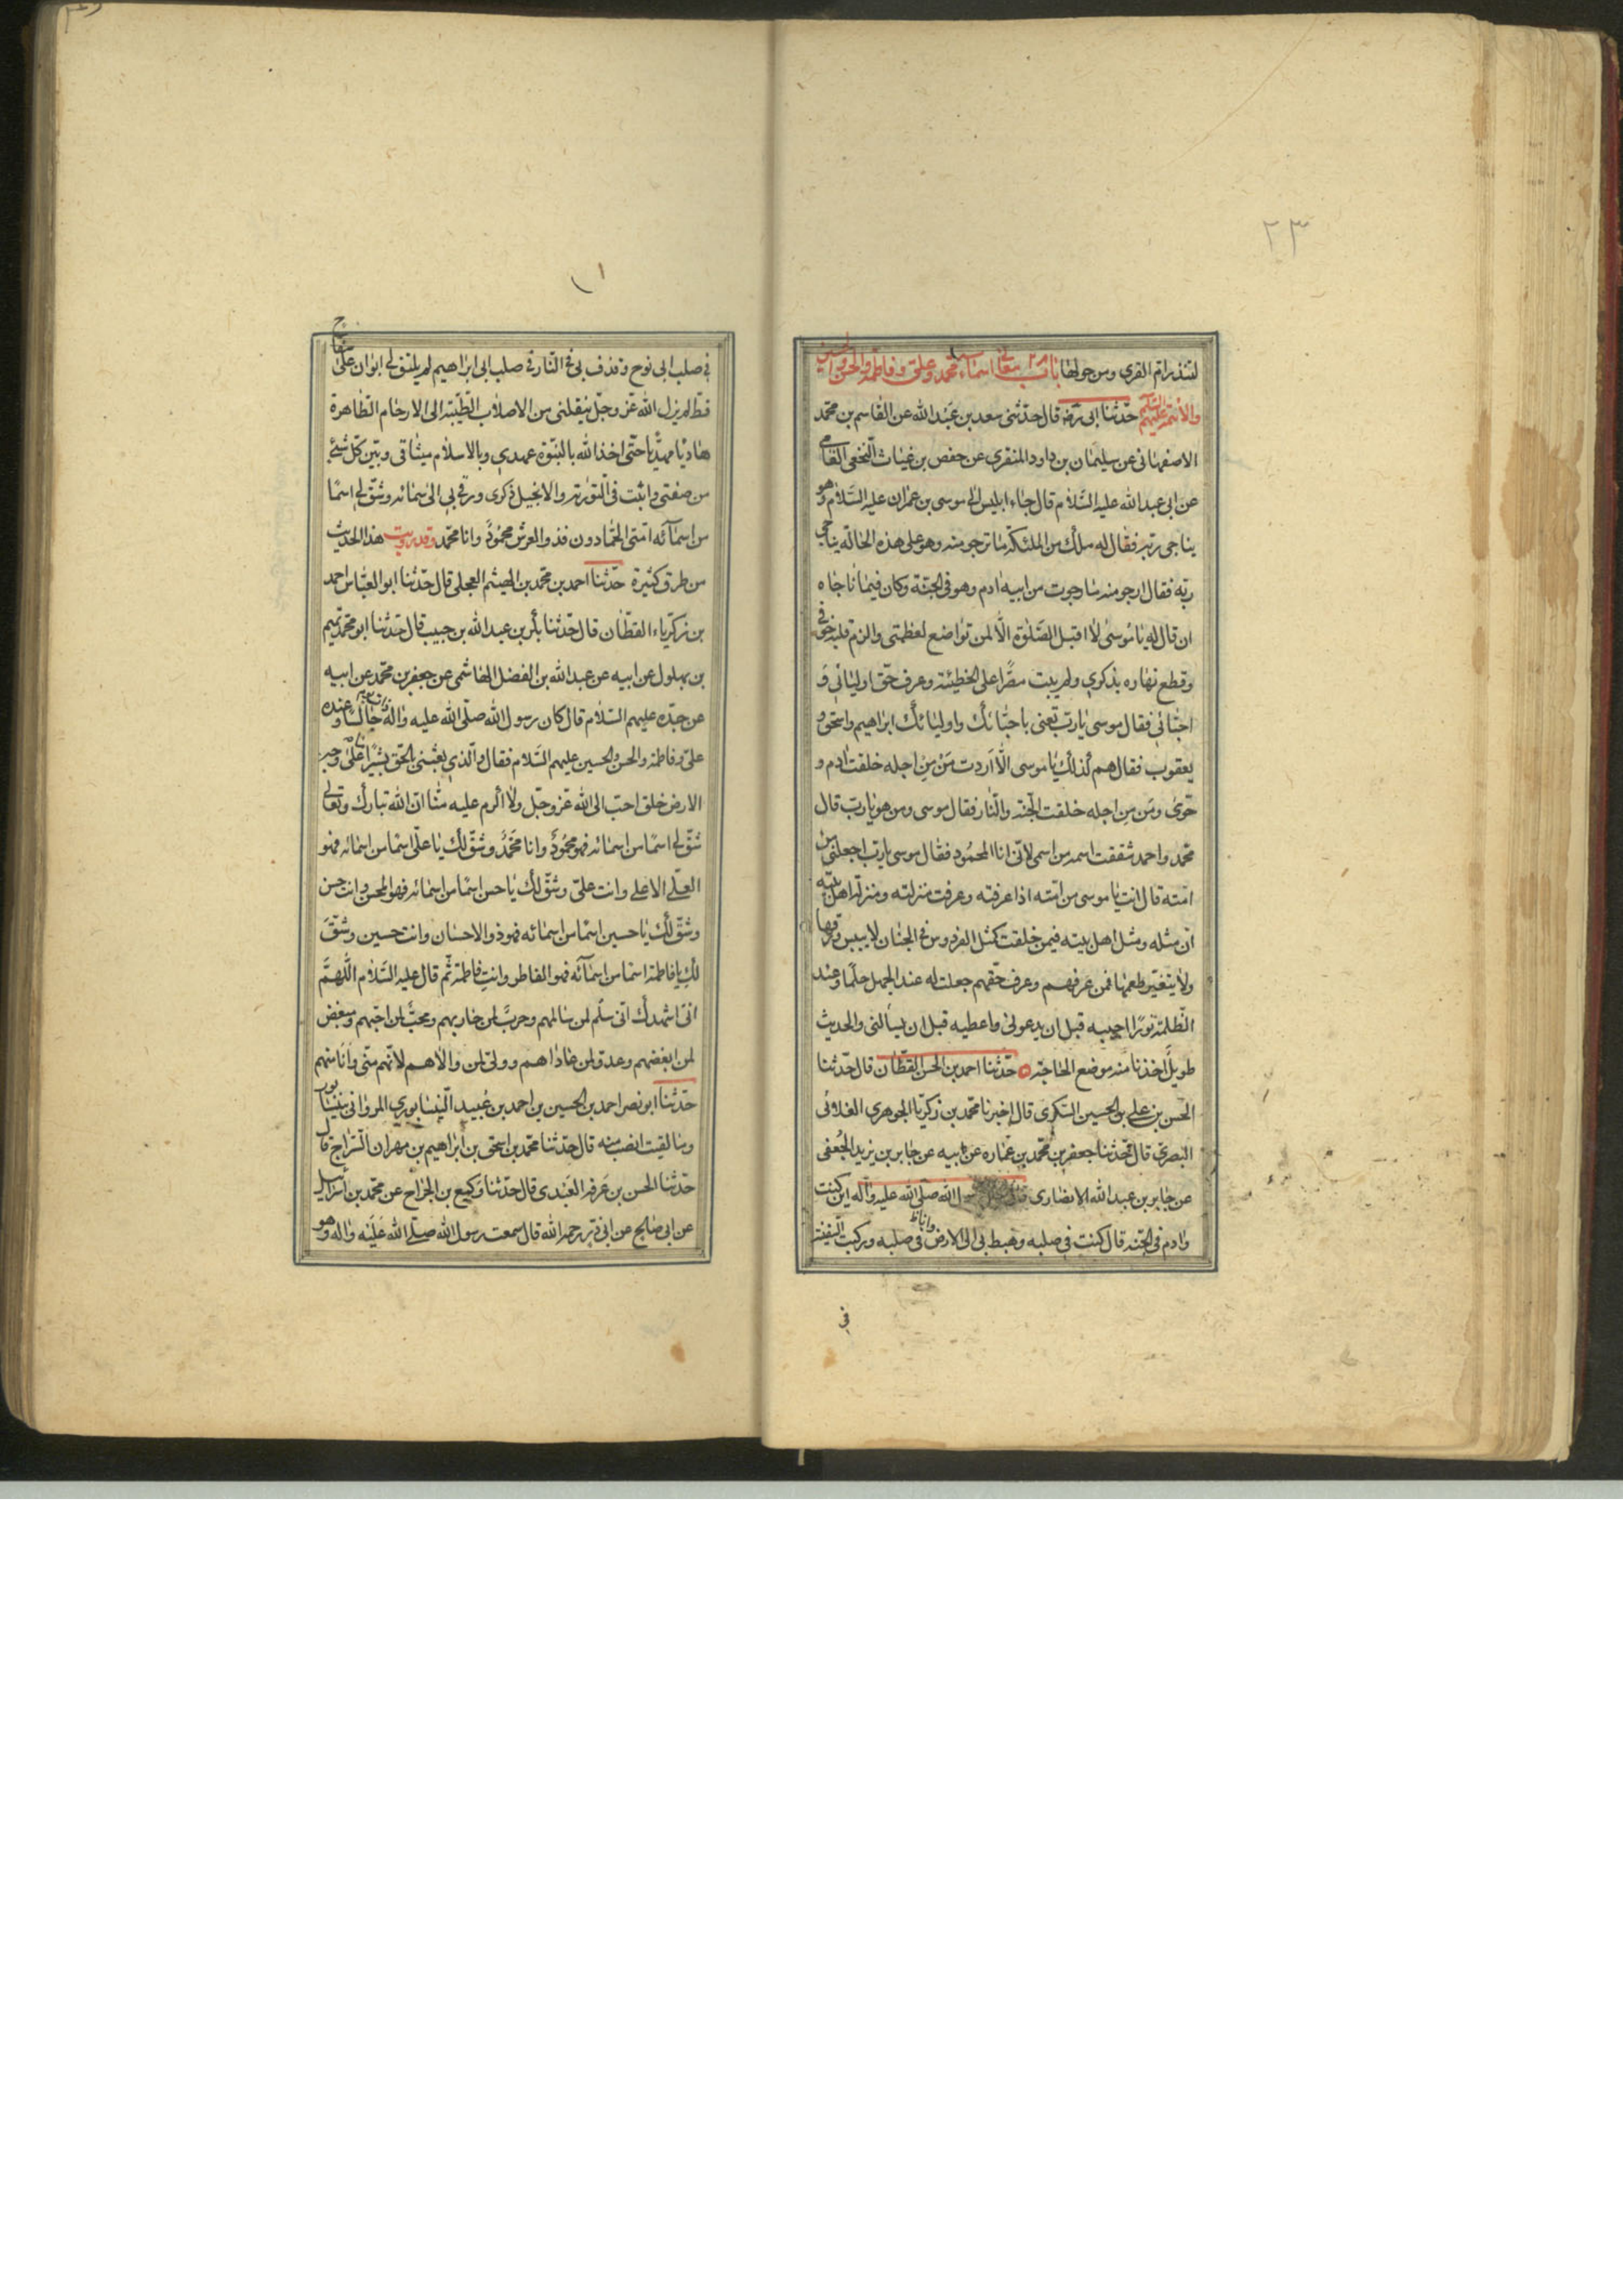 ٢٣
لتنذر ام القرى ومن حولها باب معاني اسماء محمد وعلي وفاطمة والحسن والحسين
والائمة عليهم السلام حدثنا ابي ره قال حدثني سعد بن عبد الله عن القاسم بن محمد
الاصفهاني عن سليمان بن داود المنقري عن حفص بن غياث النخعي القاضي
عن ابي عبد الله عليه السلام قال جاء ابليس الى موسى بن عمران عليه السلام وهو
يناجي ربه فقال له ملك من الملئكة ما ترجو منه وهو على هذه الحالة يناجي
ربه فقال ارجو منه ما رجوت من ابيه ادم وهو في الجنة وكان فيما ناجاه
ان قال له يا موسى لا اقبل الصلوة الا لمن تواضع لعظمتي والزم قلبه خوفي
وقطع نهاره بذكري ولم يبت مصرا على الخطيئة وعرف حق اوليائي و
احبائي فقال موسى يا رب تعني باحبائك واوليائك ابراهيم واسحق و
يعقوب فقال هم كذلك يا موسى الا اردت من من اجله خلقت ادم و
حوى ومن من اجله خلقت الجنة والنار فقال موسى ومن هو يا رب قال
محمد واحمد شققت اسمه من اسمي لاني انا المحمود فقال موسى يا رب اجعلني من
امته قال انت يا موسى من امته اذا عرفته وعرفت منزلته ومنزلة اهل بيته
ان مثله ومثل اهل بيته فيمن خلقت كمثل الفردوس في الجنان لا ييبس ورقها
ولا يتغير طعمها فمن عرفهم وعرف حقهم جعلت له عند الجهل حلما وعند
الظلمة نورا اجيبه قبل ان يدعوني واعطيه قبل ان يسألني والحديث
طويل اخذنا منه موضع الحاجة حدثنا احمد بن الحسن القطان قال حدثنا
الحسن بن علي بن الحسين السكري قال اخبرنا محمد بن زكريا الجوهري الغلائى
البصري قال حدثنا جعفر بن محمد بن عماره عن ابيه عن جابر بن يزيد الجعفي
عن جابر بن عبد الله الانصاري الله صلى الله عليه واله اين كنت
وادم في الجنة قال كنت في صلبه وهبط بي الى الارض وانا في صلبه وركبت السفينة
في
في صلب ابي نوح وقذف بي في النار في صلب ابي ابراهيم لم يلتق لي ابوان على سفاح
قط لم يزل الله عز وجل ينقلني من الاصلاب الطيبة الى الارحام الطاهرة
هاديا مهديا حتى اخذ الله بالنبوة عهدي وبالاسلام ميثاقي وبين كل شئ
من صفتي واثبت في التورية والانجيل ذكري ورقي بي الى سمائه وشق لي اسما
من اسمائه امتي الحمادون فذو العرش محمود وانا محمد وقد رويت هذا الحديث
من طرق كثيرة حدثنا احمد بن محمد بن الهيثم العجلي قال حدثنا ابو العباس احمد
بن زكرياء القطان قال حدثنا بكر بن عبد الله بن حبيب قال حدثنا ابو محمد تميم
بن بهلول عن ابيه عن عبد الله بن الفضل الهاشمي عن جعفر بن محمد عن ابيه
عن جده عليهم السلام قال كان رسول الله صلى الله عليه واله جالسا وعنده
علي وفاطمة والحسن والحسين عليهم السلام فقال والذي بعثني بالحق بشيرا ما على وجه
الارض خلق احب الى الله عز وجل ولا اكرم عليه منا ان الله تبارك وتعالى
شق لي اسما من اسمائه فهو محمود وانا محمد وشق لك يا علي اسما من اسمائه فهو
العلي الاعلى وانت علي وشق لك يا حسن اسما من اسمائه فهو المحسن وانت حسن
وشق لك يا حسين اسما من اسمائه فهو ذو الاحسان وانت حسين وشق
لك يا فاطمة اسما من اسمائه فهو الفاطر وانت فاطمة ثم قال عليه السلام اللهم
اني اشهدك اني سلم لمن سالمهم وحرب لمن حاربهم ومحب لمن احبهم ومبغض
لمن ابغضهم وعدو لمن عاداهم وولي لمن والاهم لانهم مني وانا منهم
حدثنا ابو نصر احمد بن الحسين بن احمد بن عبيد النيسابوري المرواني بنيسابور
وما لقيت انصب منه قال حدثنا محمد بن اسحق بن ابراهيم بن مهران السراج قال
حدثنا الحسن بن عرفه العبدي قال حدثنا وكيع بن الجراح عن محمد بن اسرائيل
عن ابي صالح عن ابي ذر رحمه الله قال سمعت رسول الله صلى الله عليه واله وهو